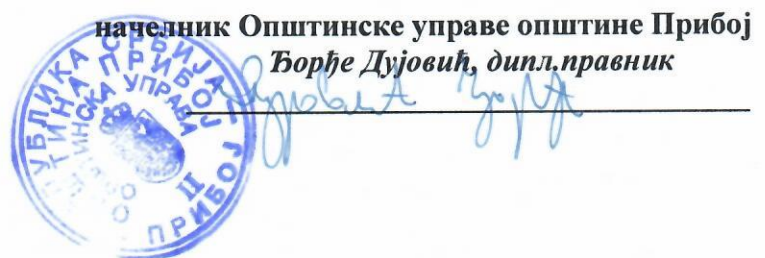 начелник Општинске управе општине Прибој
Ђорђе Дујовић, дипл.правник
Дујовић Ђорђе
РЕПУБЛИКА СРБИЈА
ОПШТИНА ПРИБОЈ
ОПШТИНСКА УПРАВА
II
ПРИБОЈ